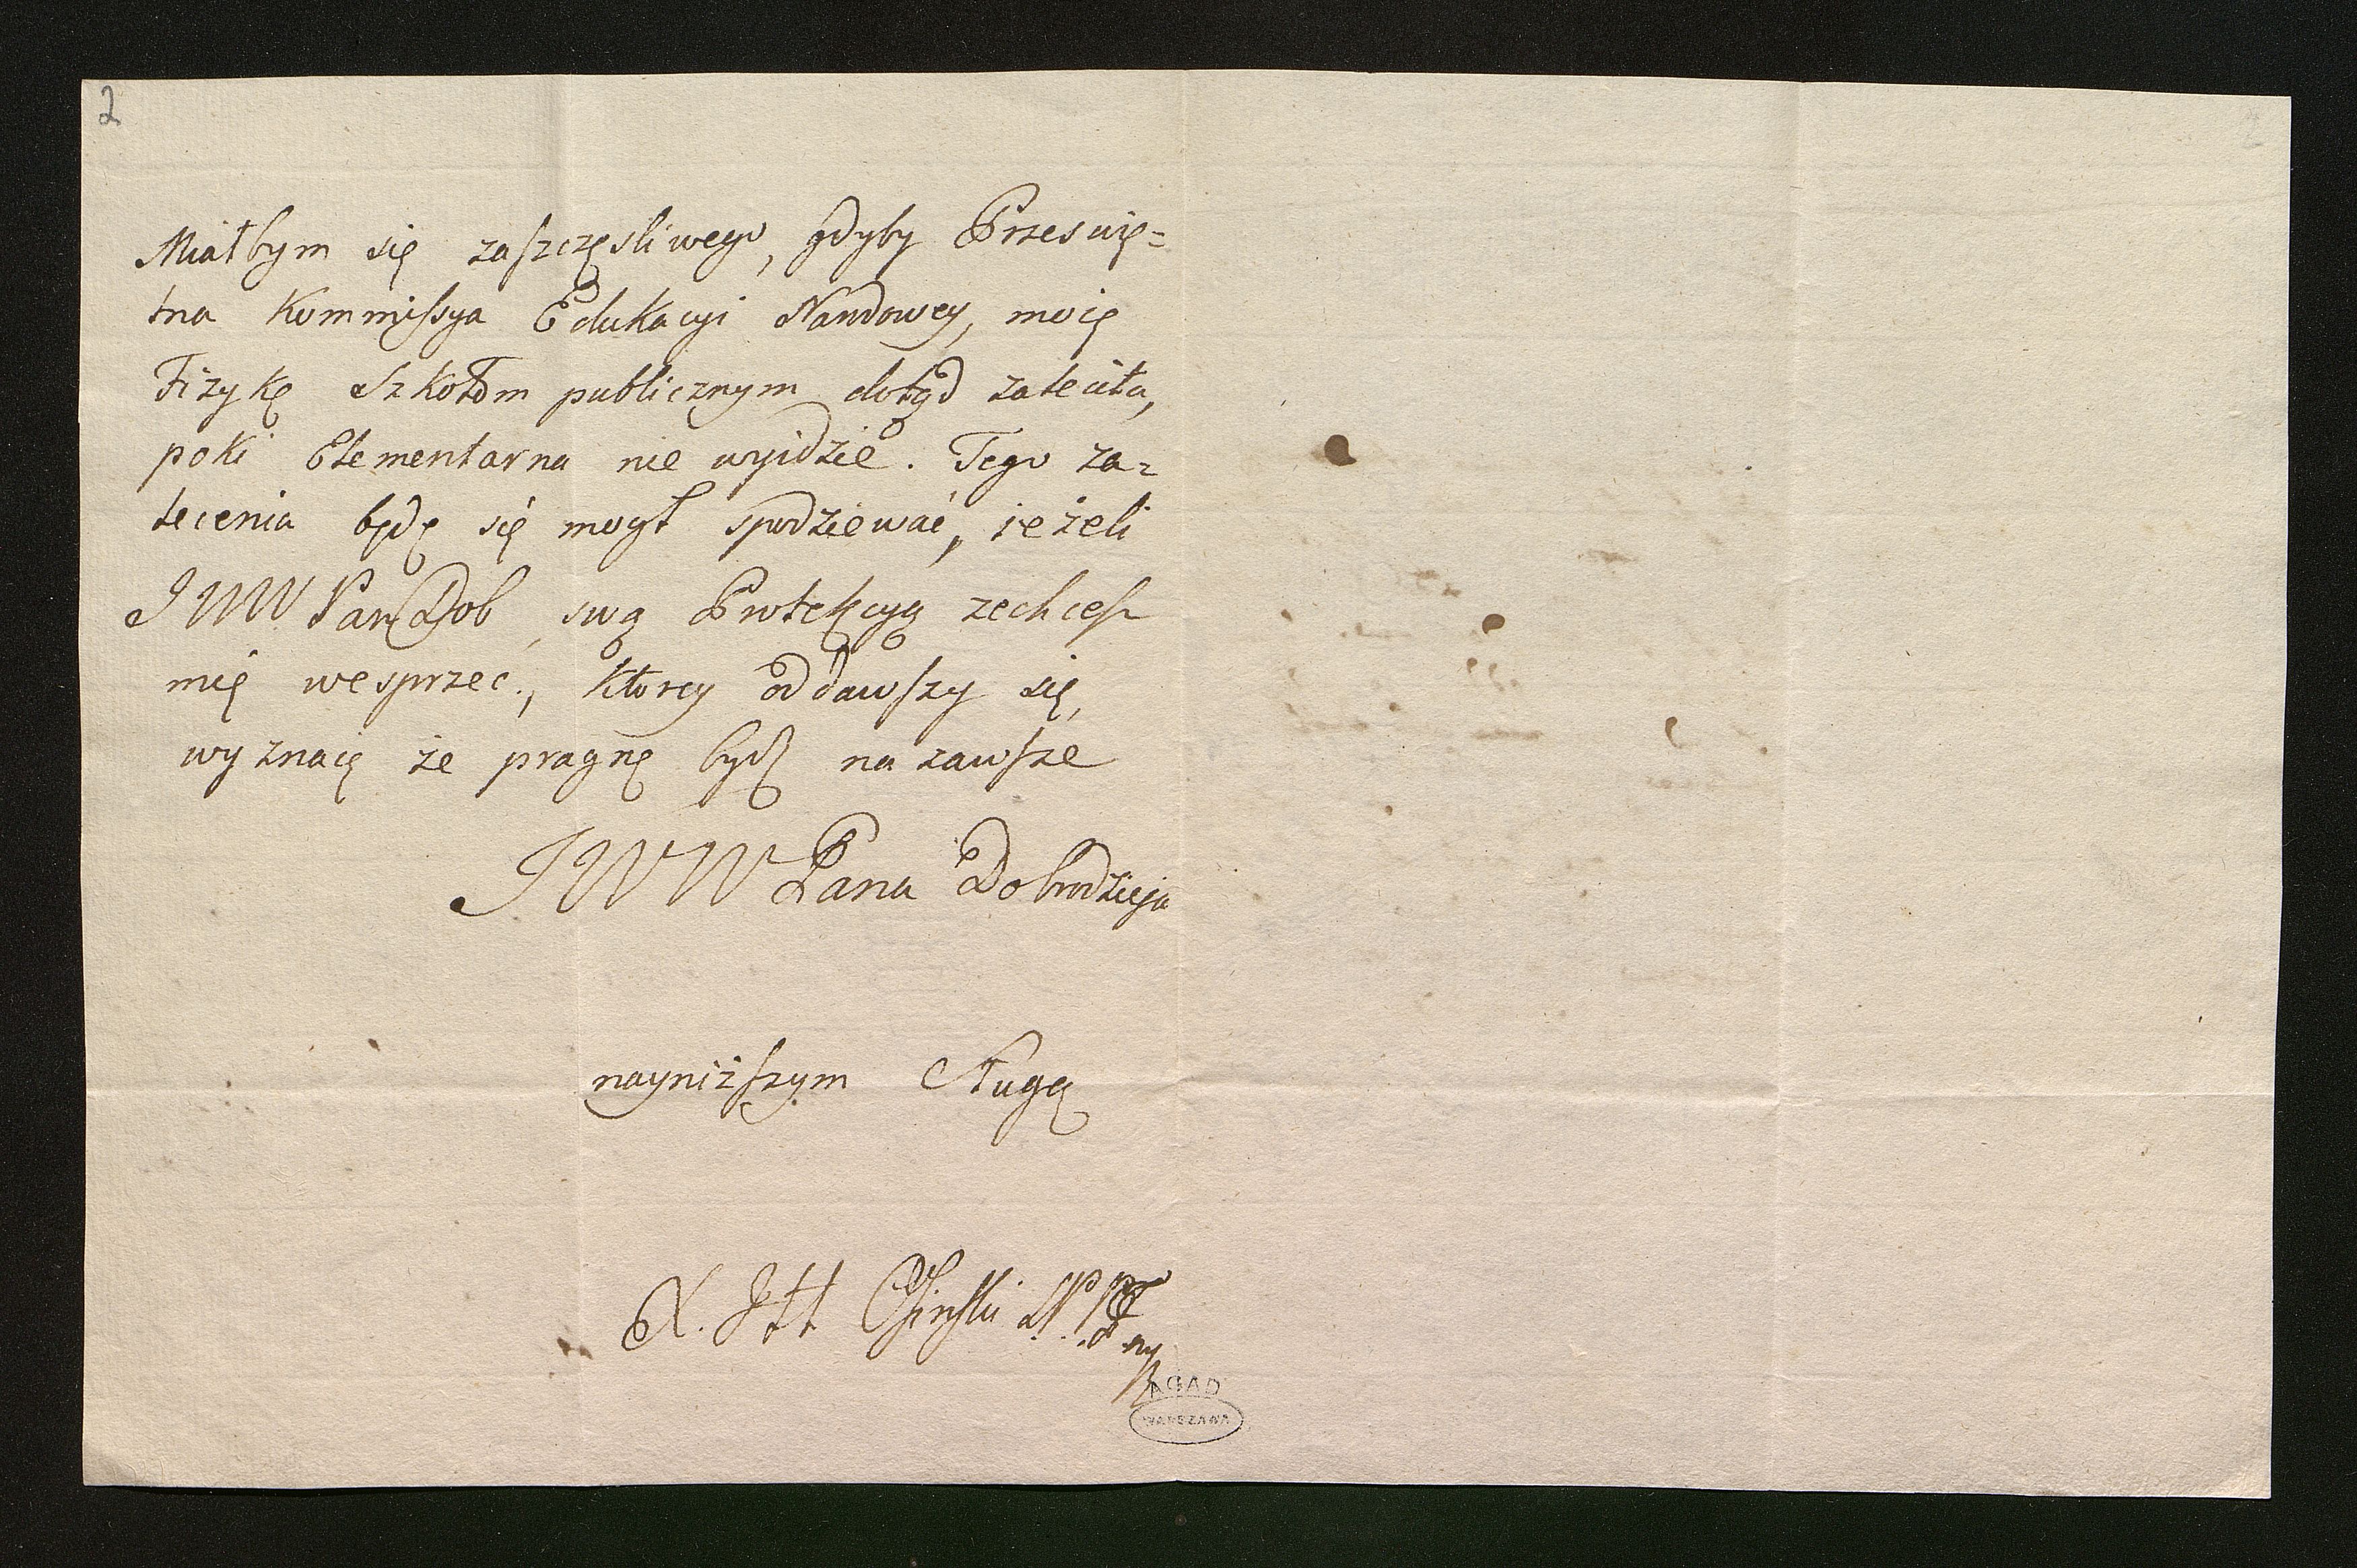 2
Miałbym się za szczęsliwego, gdyby Prześwię=
tna Kommissya Edukacyi Narodowey, moię
Fizykę Szkołom publicznym dotąd zaleciła,
poki Elementarna nie wyidzie. Tego za=
lecenia będę się mogł spodziewać, ieżeli
JWW Pan Dob swą Protekcyą zechcesz
mię wesprzec, ktorey oddawszy się,
wyznaię że pragnę bydź na zawsze
JWW Pana Dobrodzieja
nayniższym Sługą
X. Jtt Osinski
AGAD
WARSZAWA